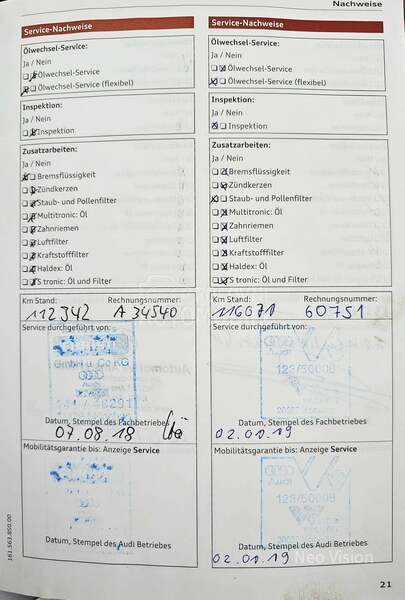 Nachweise
Service-Nachweise
Ölwechsel-Service:
Ja / Nein
Ölwechsel-Service
Ölwechsel-Service (flexibel)
Inspektion:
Ja / Nein
Inspektion
Zusatzarbeiten:
Ja / Nein
Bremsflüssigkeit
Zündkerzen
Staub- und Pollenfilter
Multitronic: Öl
Zahnriemen
Luftfilter
Kraftstofffilter
Haldex: Öl
S tronic: Öl und Filter
Km Stand: Rechnungsnummer:
112342 A 34540
Service durchgeführt von:
GmbH u. Co KG
Datum, Stempel des Fachbetriebes
07.08.18
Mobilitätsgarantie bis: Anzeige Service
Datum, Stempel des Audi Betriebes
Service-Nachweise
Ölwechsel-Service:
Ja / Nein
Ölwechsel-Service
Ölwechsel-Service (flexibel)
Inspektion:
Ja / Nein
Inspektion
Zusatzarbeiten:
Ja / Nein
Bremsflüssigkeit
Zündkerzen
Staub- und Pollenfilter
Multitronic: Öl
Zahnriemen
Luftfilter
Kraftstofffilter
Haldex: Öl
S tronic: Öl und Filter
Km Stand: Rechnungsnummer:
116071 60751
Service durchgeführt von:
123/50008
Datum, Stempel des Fachbetriebes
02.01.19
Mobilitätsgarantie bis: Anzeige Service
123/50008
Datum, Stempel des Audi Betriebes
02.01.19
Neo Vision
161.563.850.00
21